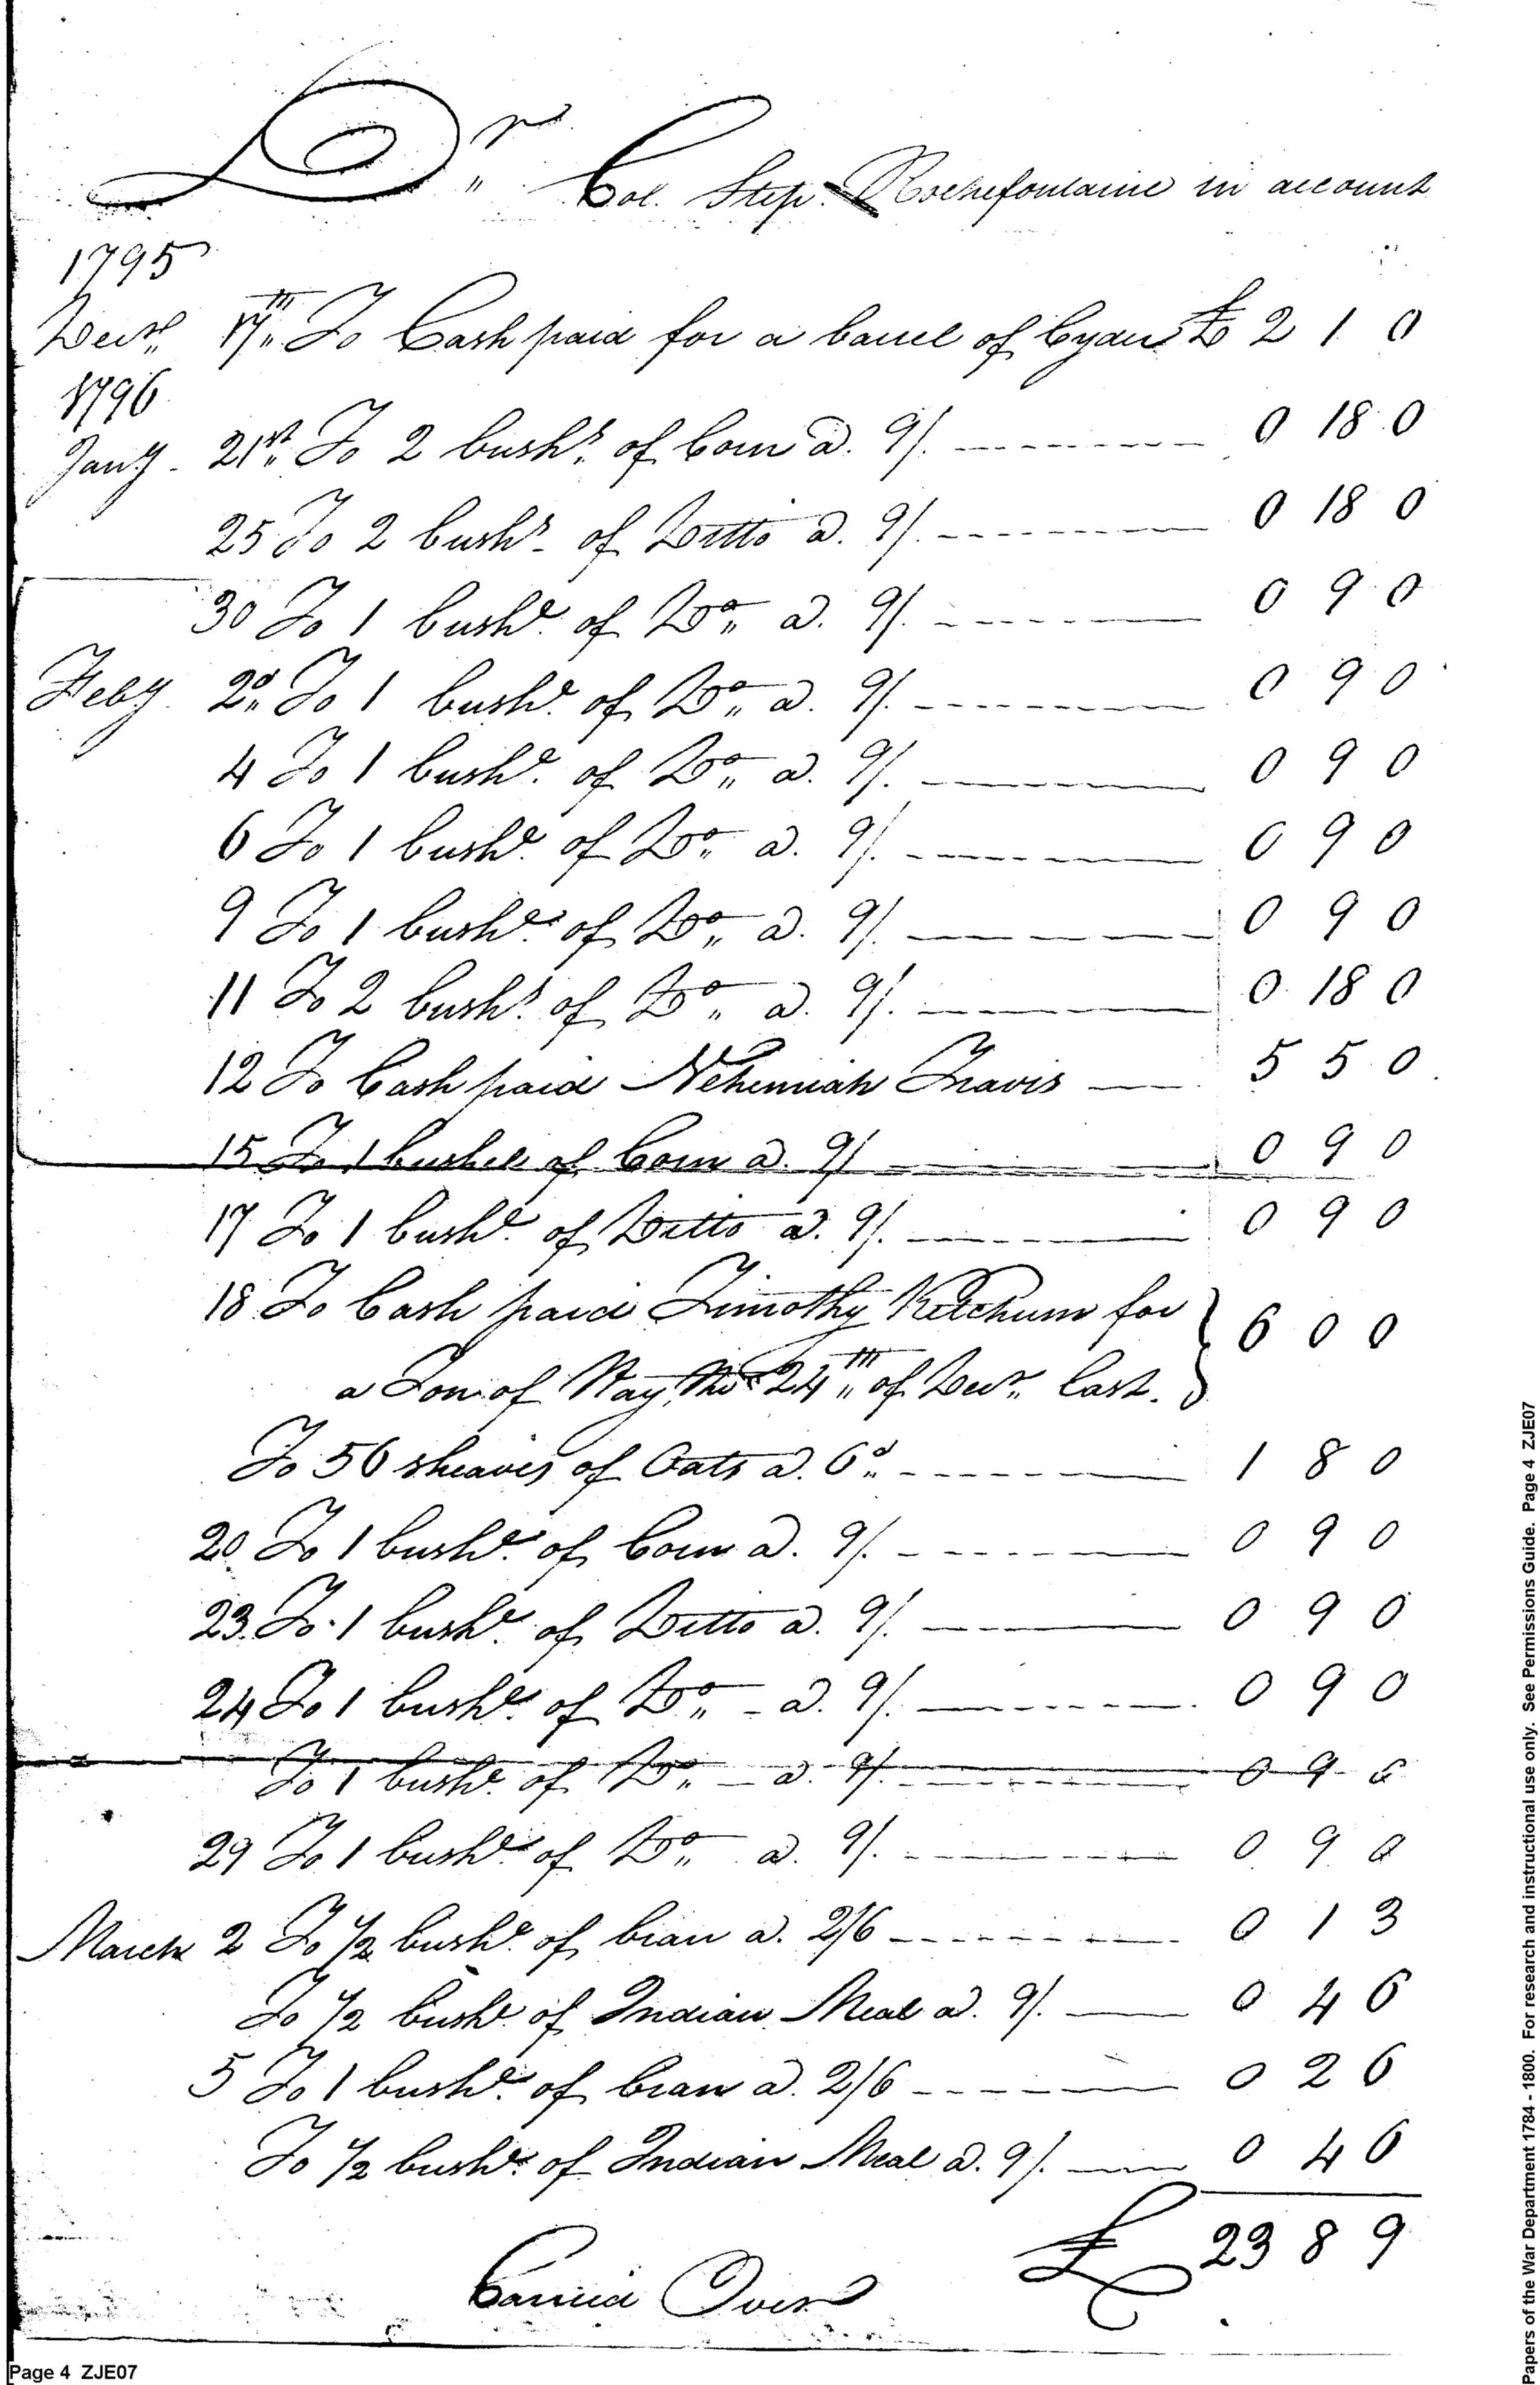 Dr. Col. Step. Rochefontaine in account
1795
Decr. 17th To Cash paid for a barrel of Cyder £ 2 1 0
1796
Jany. 21st To 2 bushs. of Corn a. 9/. 0 18 0
25 To 2 bushs. of Ditto a. 9/. 0 18 0
30 To 1 bushl. of Do. a. 9/. 0 9 0
Feby. 2d. To 1 bushl. of Do. a. 9/. 0 9 0
4 To 1 bushl. of Do. a. 9/. 0 9 0
6 To 1 bushl. of Do. a. 9/. 0 9 0
9 To 1 bushl. of Do. a. 9/. 0 9 0
11 To 2 bushs. of Do. a. 9/. 0 18 0
12 To Cash paid Nehemiah Travis 5 5 0
15 To 1 bushel of Corn a. 9/ 0 9 0
17 To 1 bushl. of Ditto a. 9/. 0 9 0
18 To Cash paid Timothy Ketchum for
a Ton of Hay, the 24th of Decr. last. } 6 0 0
To 56 sheaves of Oats a. 6d. 1 8 0
20 To 1 bushl. of Corn a. 9/. 0 9 0
23. To 1 bushl. of Ditto a. 9/. 0 9 0
24 To 1 bushl. of Do. - a. 9/. 0 9 0
To 1 bushl. of Do. - a. 9/. 0 9 0
29 To 1 bushl. of Do. a. 9/. 0 9 0
March 2 To 1/2 bushl. of bran a. 2/6 0 1 3
To 1/2 bushl. of Indian Meal a. 9/. 0 4 6
5 To 1 bushl. of bran a. 2/6 0 2 6
To 1/2 bushl. of Indian Meal a. 9/. 0 4 6
£ 23 8 9
Carried Over
Page 4 ZJE07
Papers of the War Department 1784 - 1800. For research and instructional use only. See Permissions Guide. Page 4 ZJE07